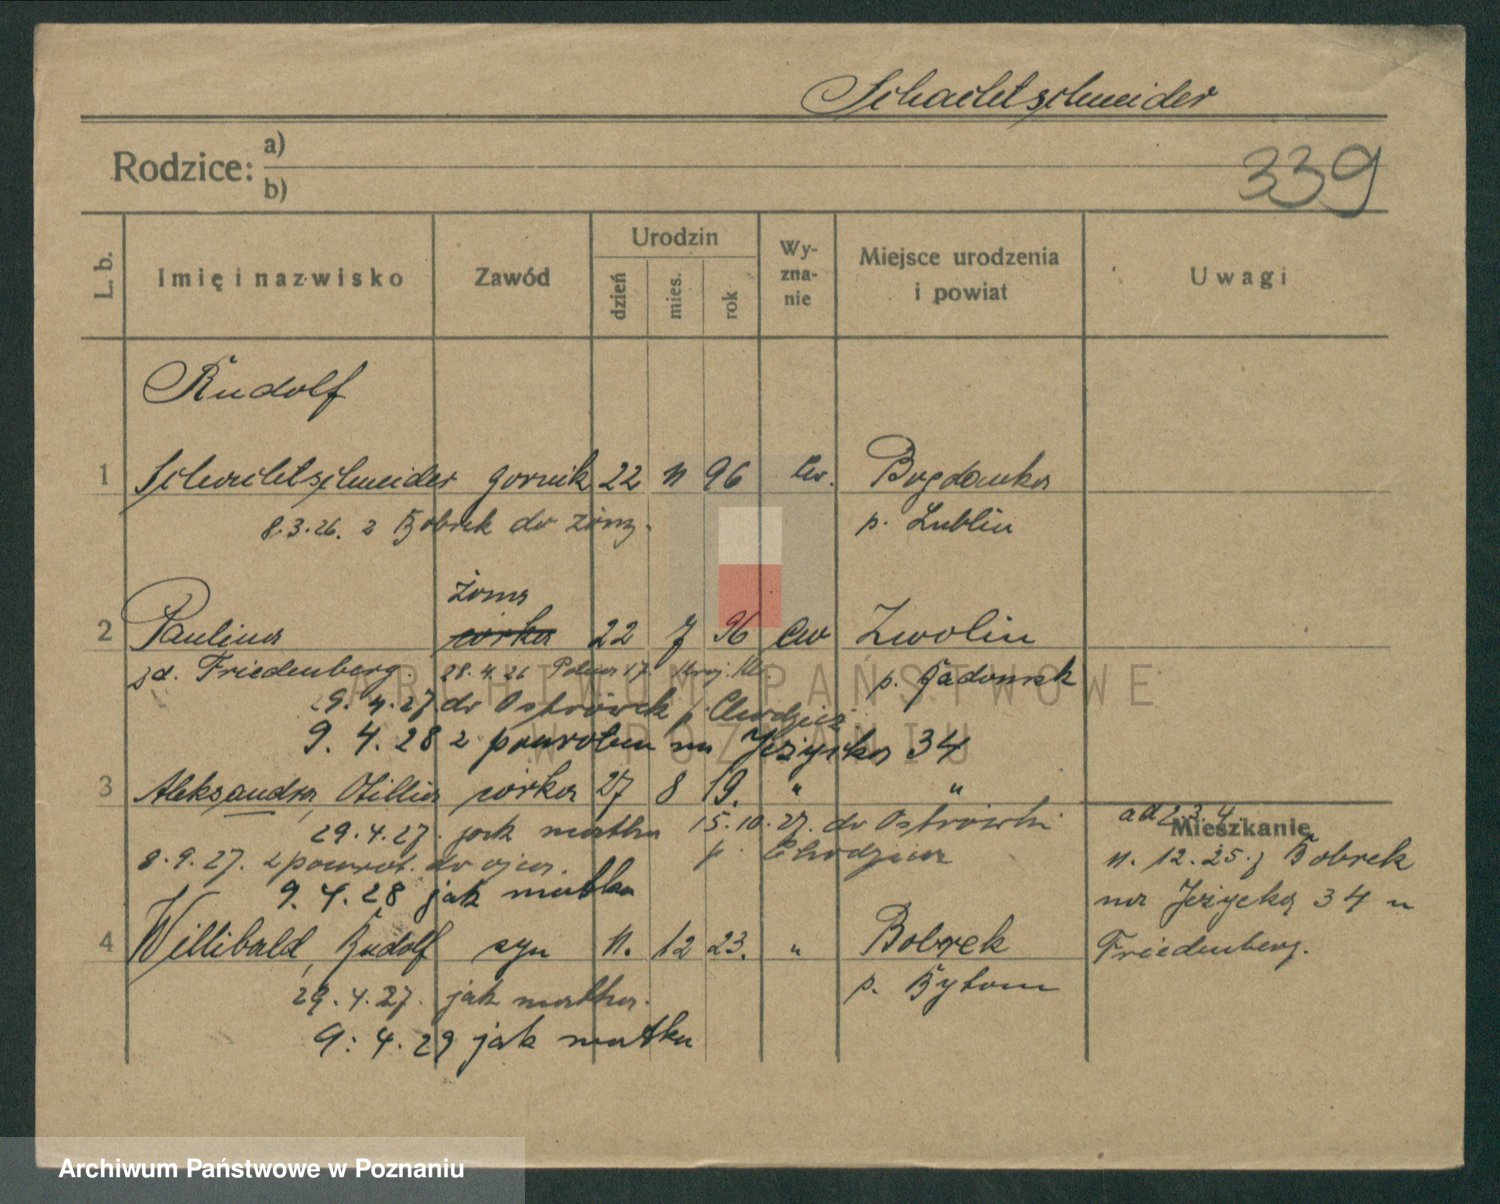 Schachtschneider
Rodzice: a)
b)
339
L. b.
Imię i nazwisko
Zawód
Urodzin
dzień
mies.
rok
Wy-
zna-
nie
Miejsce urodzenia
i powiat
Uwagi
Rudolf
1 Schachtschneider gornik 22 11 96 Ew. Bogdanka
8.3.26. z Bobrek do żony. p. Lublin
żona
2 Paulina córka 22 7 96 Ew Zwolin
zd. Friedenberg. 28.4.26 17. p. Radomsk
29.4.27 do Ostrówek p. Chodzież
9.4.28 z powrotem na Jeżycka 34
3 Aleksandra, Otillia córka 27 8 19. " "
29.4.27. jak matka 15.10.27. do Ostrówki
8.9.27. z powrot. do ojca. p. Chodzież
9.4.28 jak matka
4 Willibald, Rudolf syn 11. 12 23. " Bobrek
29.4.27. jak matka. p. Bytom
9.4.29 jak matka
ad 2.3.4.
Mieszkanie
11.12.25. z Bobrek
na Jeżycką 34 u
Friedenberg.
ARCHIWUM PAŃSTWOWE
W POZNANIU
Archiwum Państwowe w Poznaniu